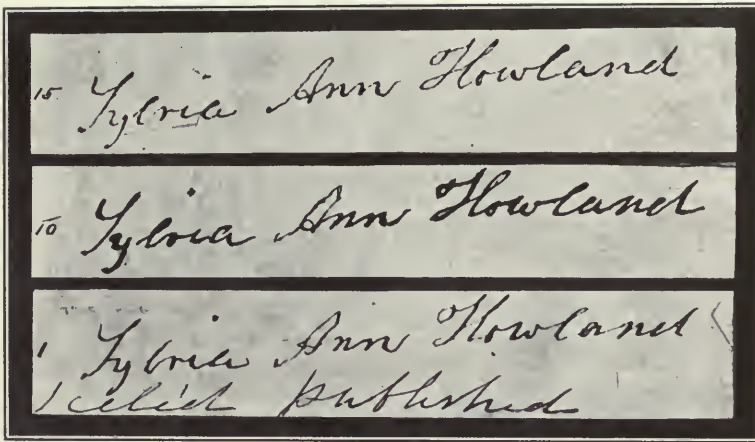 15 Sylvia Ann Howland
10 Sylvia Ann Howland
1 Sylvia Ann Howland
published